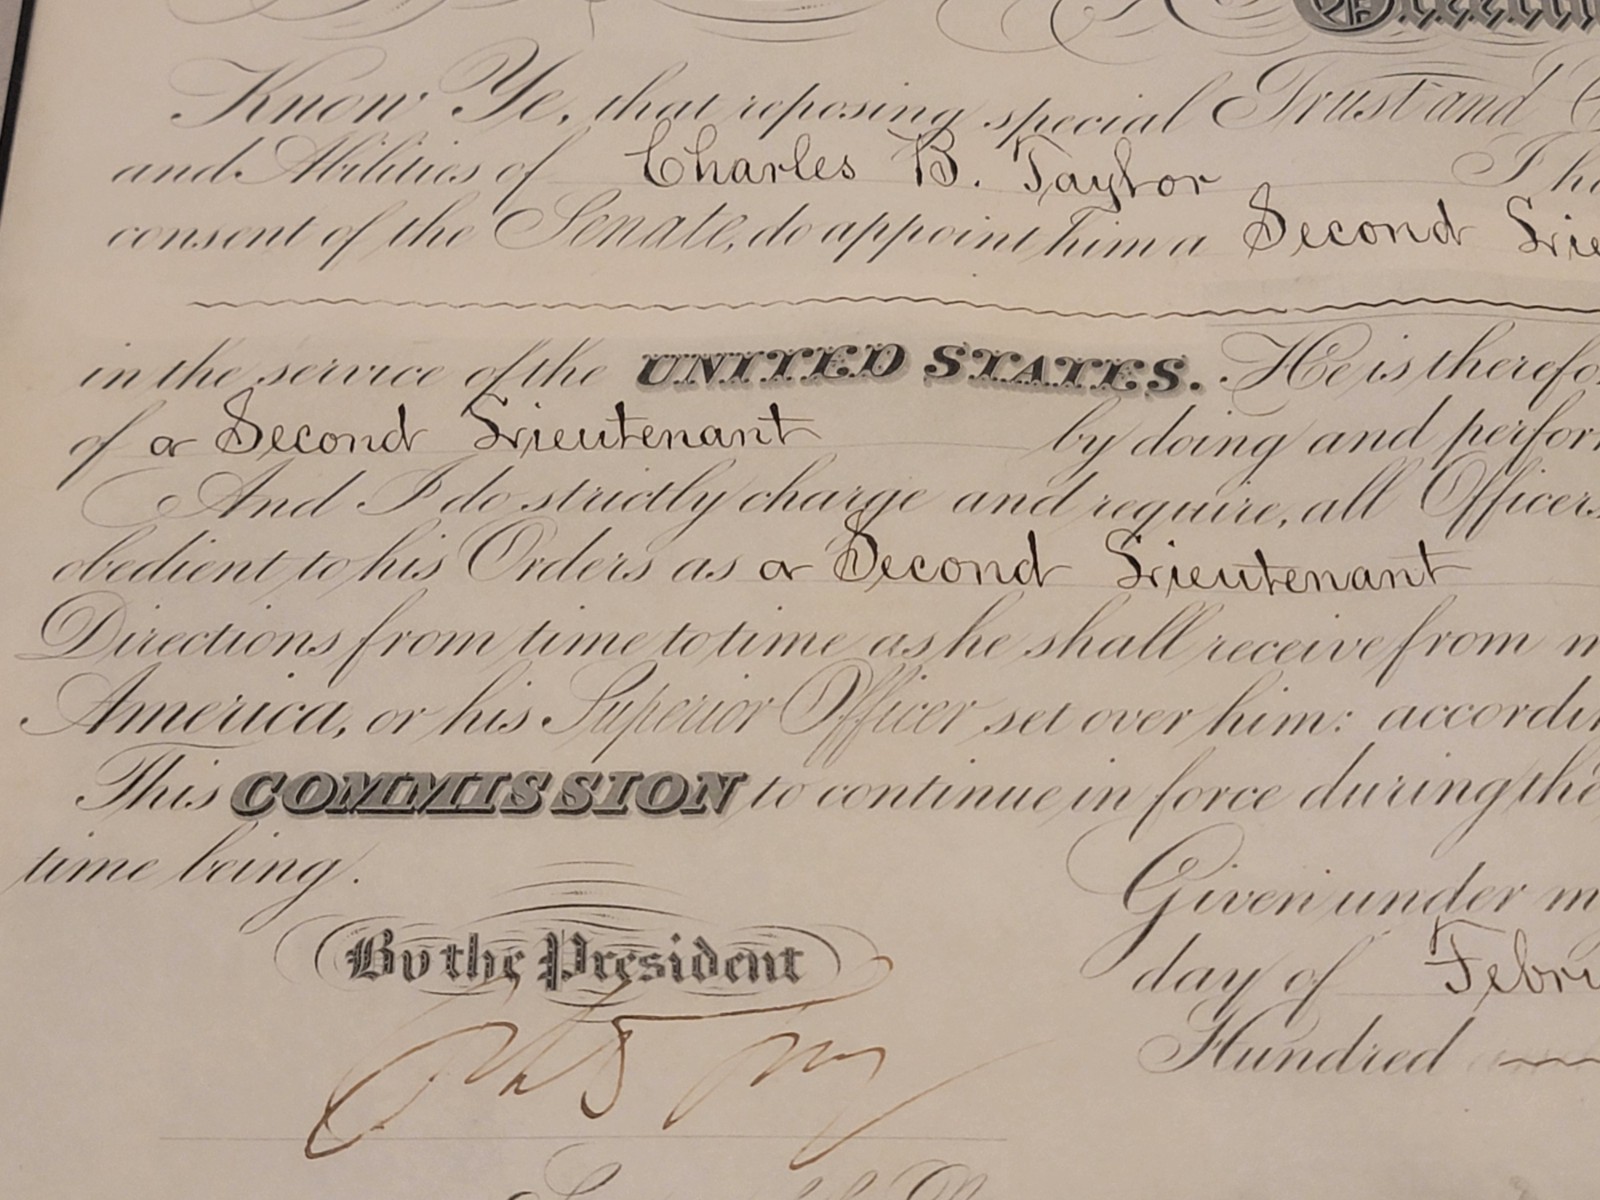 Know Ye, that reposing special Trust and
and Abilities of Charles B. Taylor I ha
consent of the Senate, do appoint him a Second Lie
in the service of the UNITED STATES. He is therefo
of a Second Lieutenant by doing and perfor
And I do strictly charge and require, all Officers
obedient to his Orders as a Second Lieutenant
Directions from time to time as he shall receive from m
America, or his Superior Officer set over him: accordin
This COMMISSION to continue in force during the
time being.
Given under m
By the President
day of Febru
Hundred